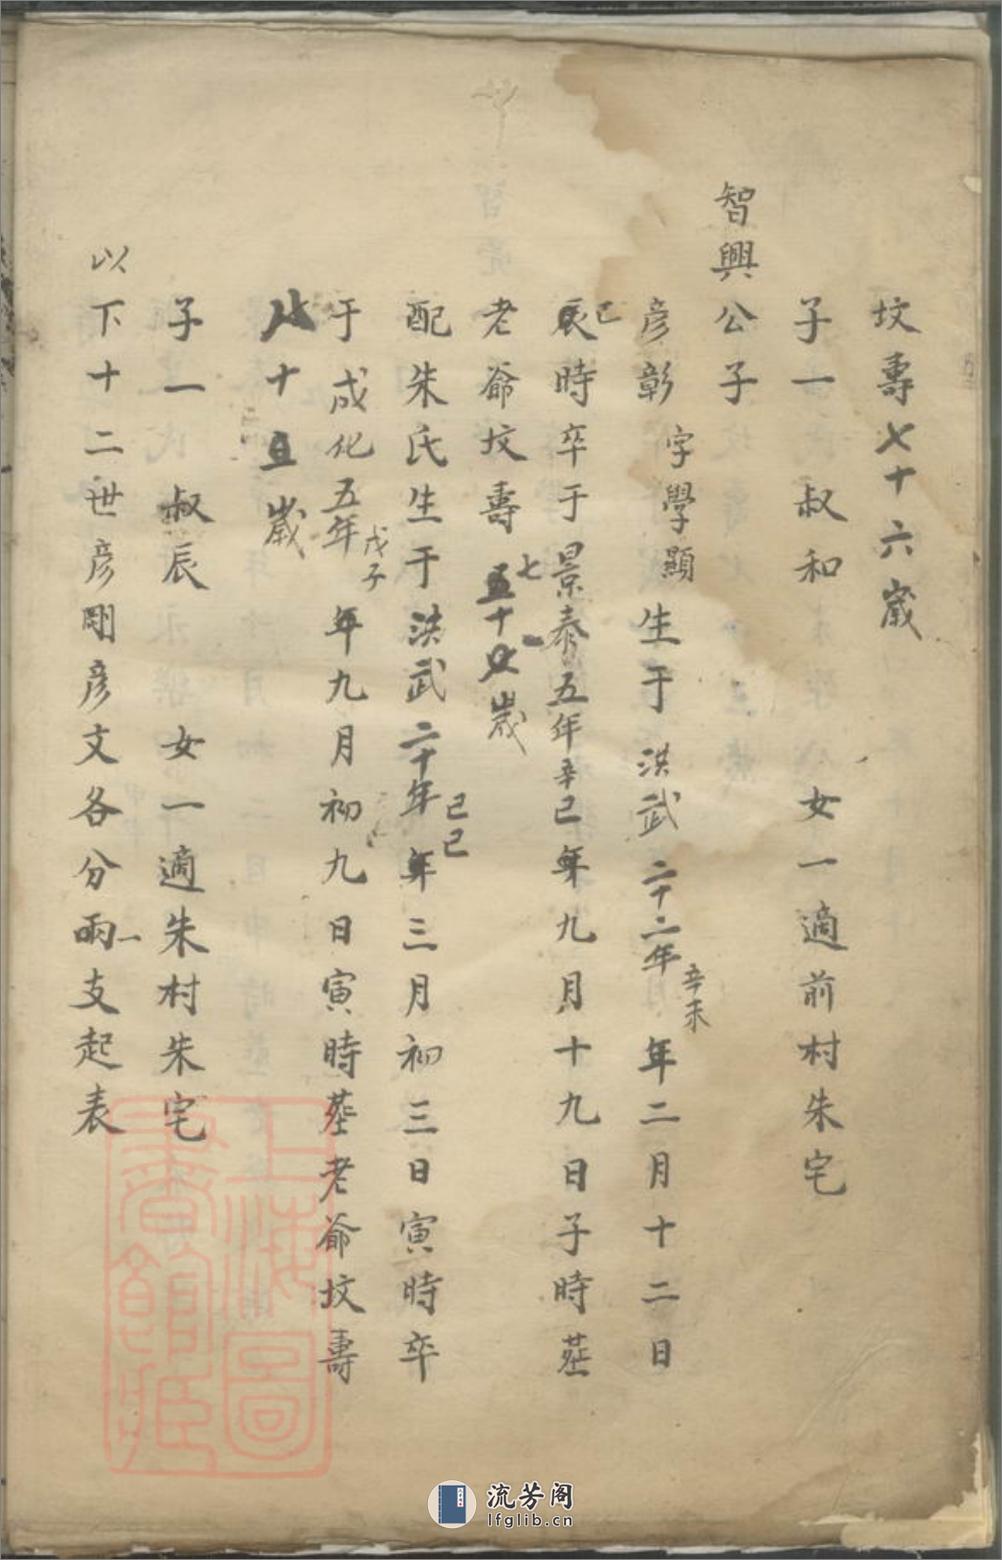 坟壽七十六嵗
子一 叔和 女一適前村朱宅
智興公子
彦彰 字學顯 生于 洪武二十二年 辛未 年二月十二日
辰巳時卒于景泰五年辛巳年九月十九日子時塟
老爺坟壽五十七一嵗
配朱氏生于洪武二十年己巳年三月初三日寅時卒
于成化五年戊子年九月初九日寅時塟老爺坟壽
八十嵗
子一 叔辰 女一適朱村朱宅
以下十二世彦剛彦文各分兩一支起表
上海圖
書館藏
流芳阁
lfglib.cn